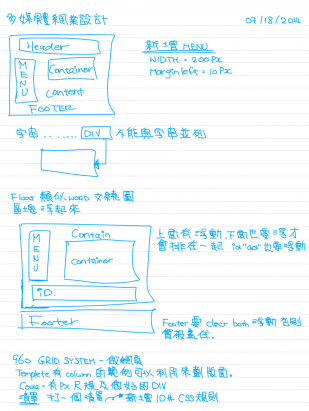 多媒體網頁設計 07/18/2014
Header
MENU
Container
Content
FOOTER
新增 MENU
WIDTH = 200Px
Margin left = 10Px
字串...... DIV 不能與字串並列
Float 類似WORD 文繞圖
區塊浮起來
MENU
Contain
Container
ID.
Footer
上面有浮動,下面也要浮才
會排在一起 id"aa"也要浮動
Footer 要 clear both 浮動 否則
會被蓋住.
960 GRID SYSTEM - 做網頁
Template 有 column 的範例可以利用來劃版面.
Code = 有Px尺規及個好的DIV
清單 打一個清單 新增ID供CSS規則